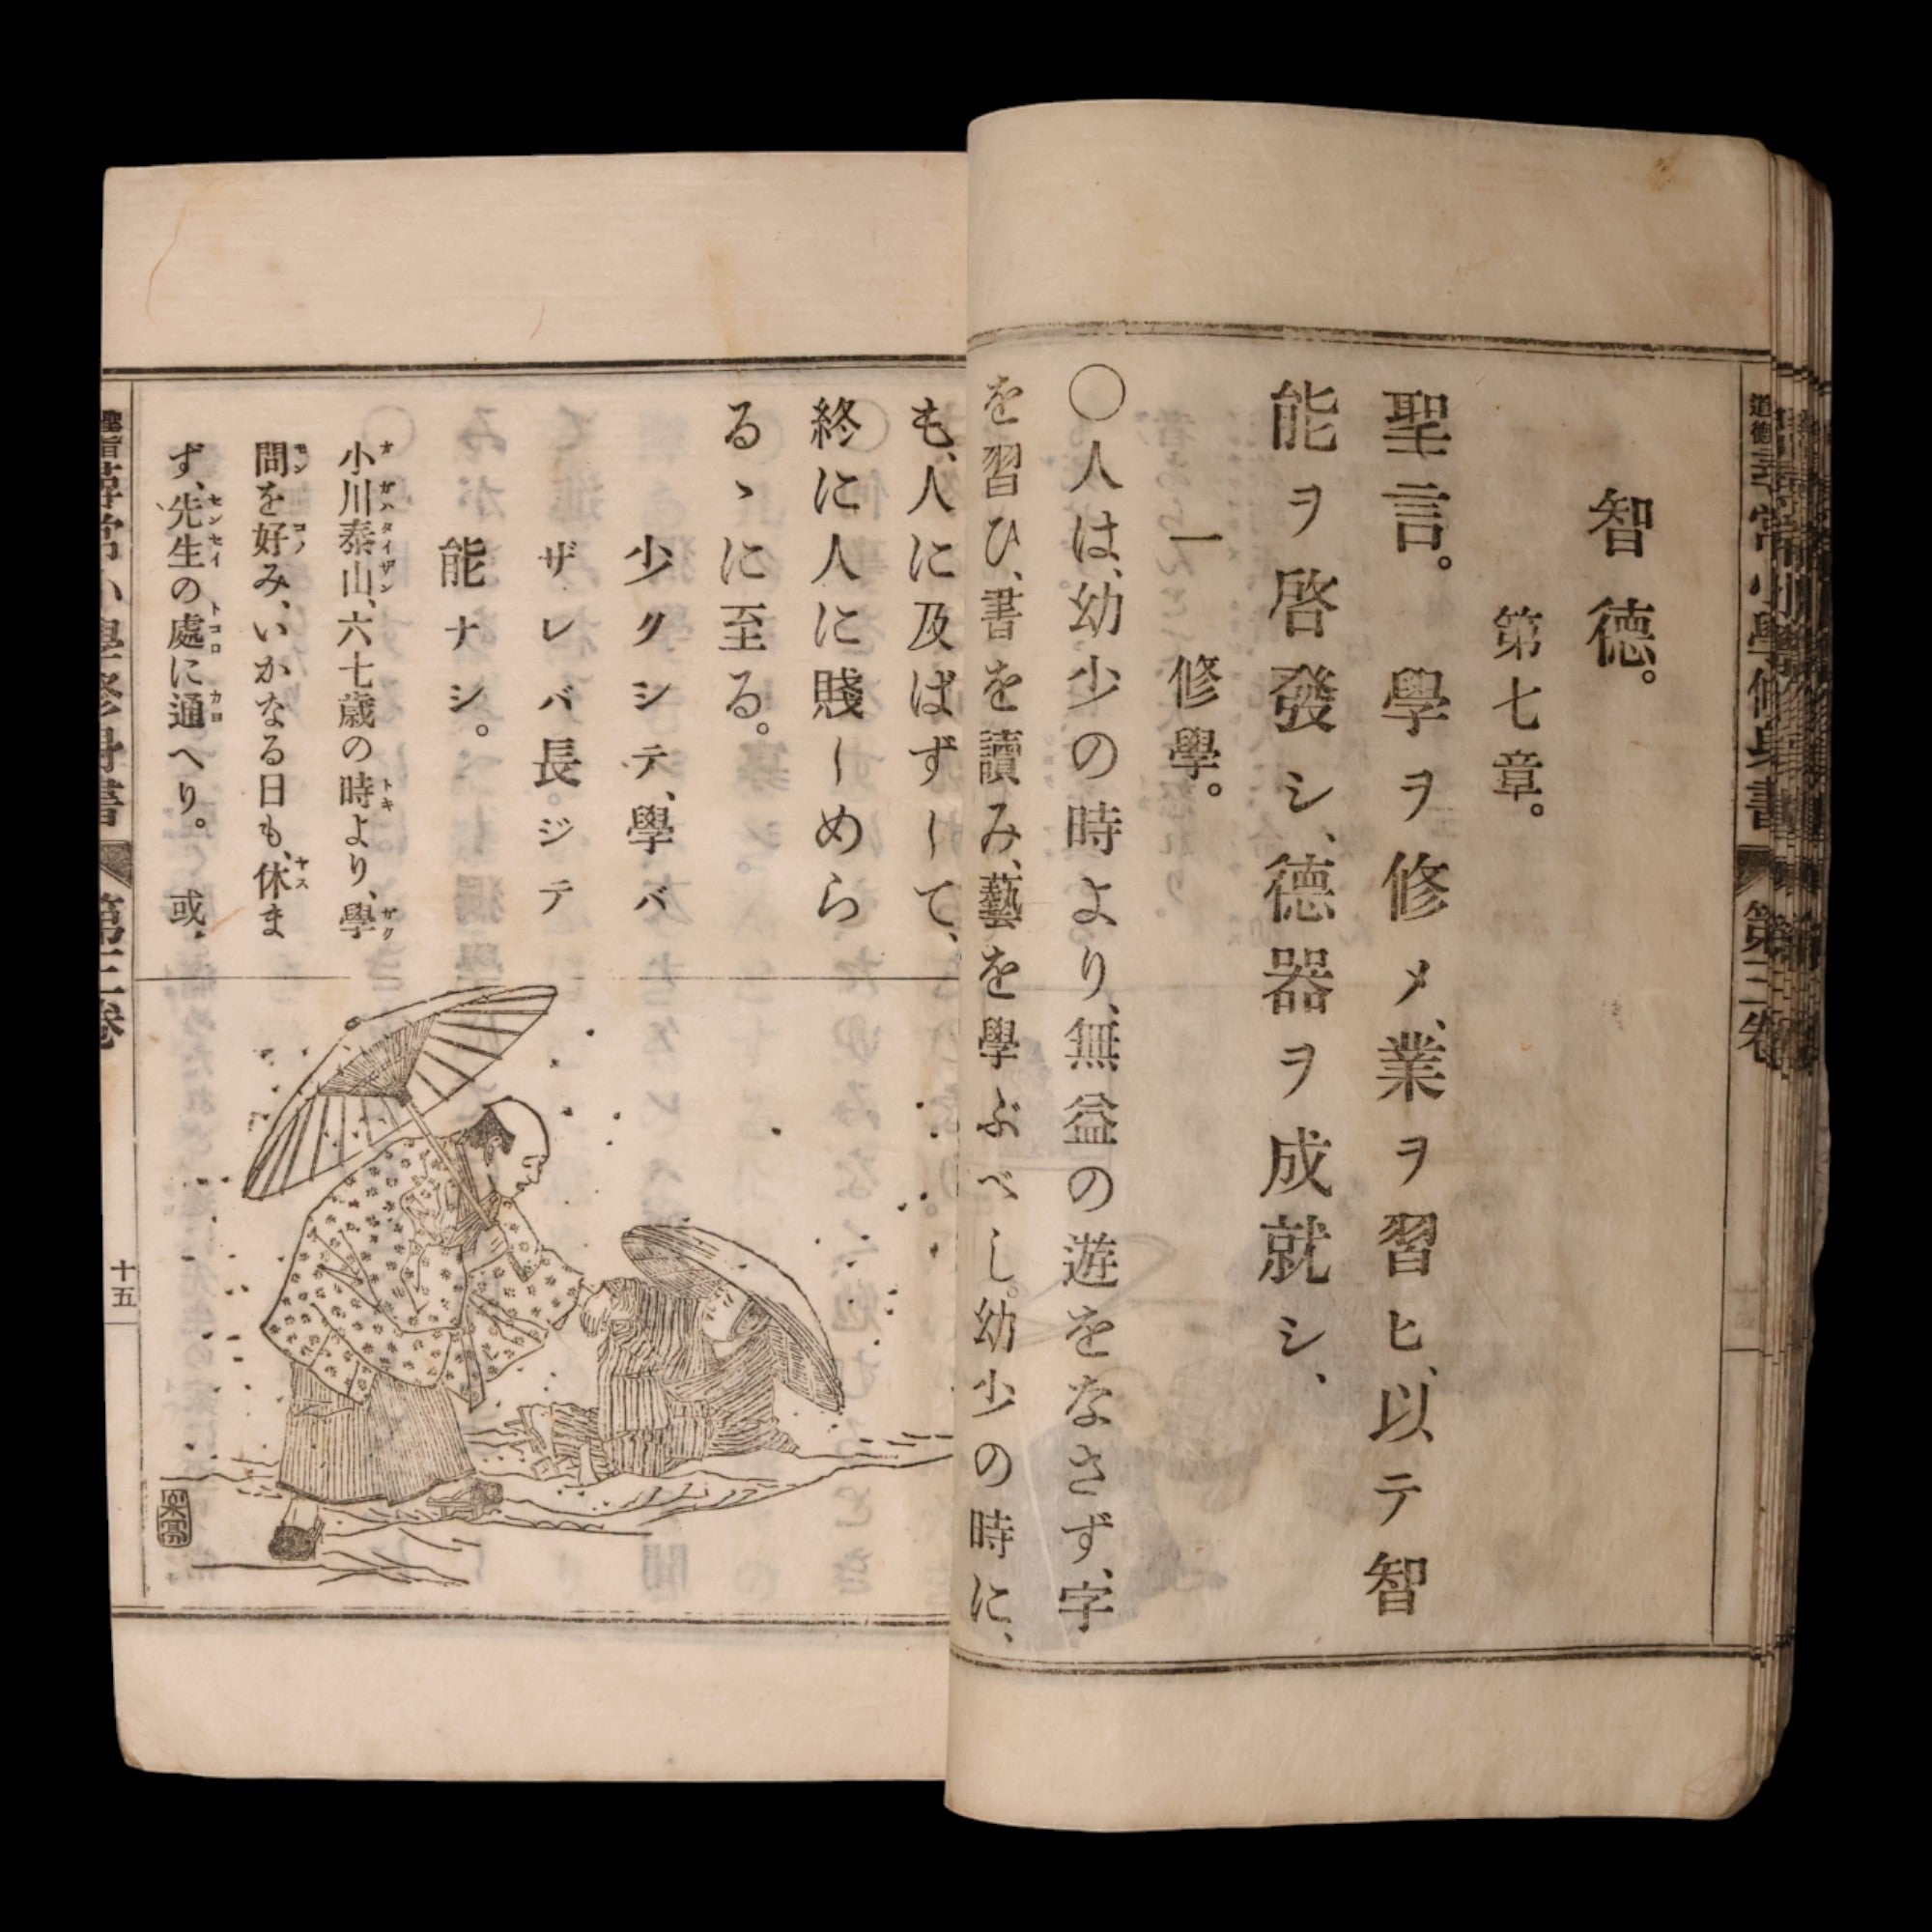 智德。
第七章。
聖言。　學ヲ修メ、業ヲ習ヒ、以テ智
能ヲ啓發シ、德器ヲ成就シ、
一　修學。
〇人は、幼少の時より、無益の遊をなさず、字
を習ひ、書を讀み、藝を學ぶべし。幼少の時に、
も、人に及ばずして、
終に人に賤しめら
るゝに至る。
少クシテ、學バ
ザレバ長ジテ
能ナシ。
小川泰山、六七歲の時より、學
問を好み、いかなる日も、休ま
ず、先生の處に通へり。　或、
十五